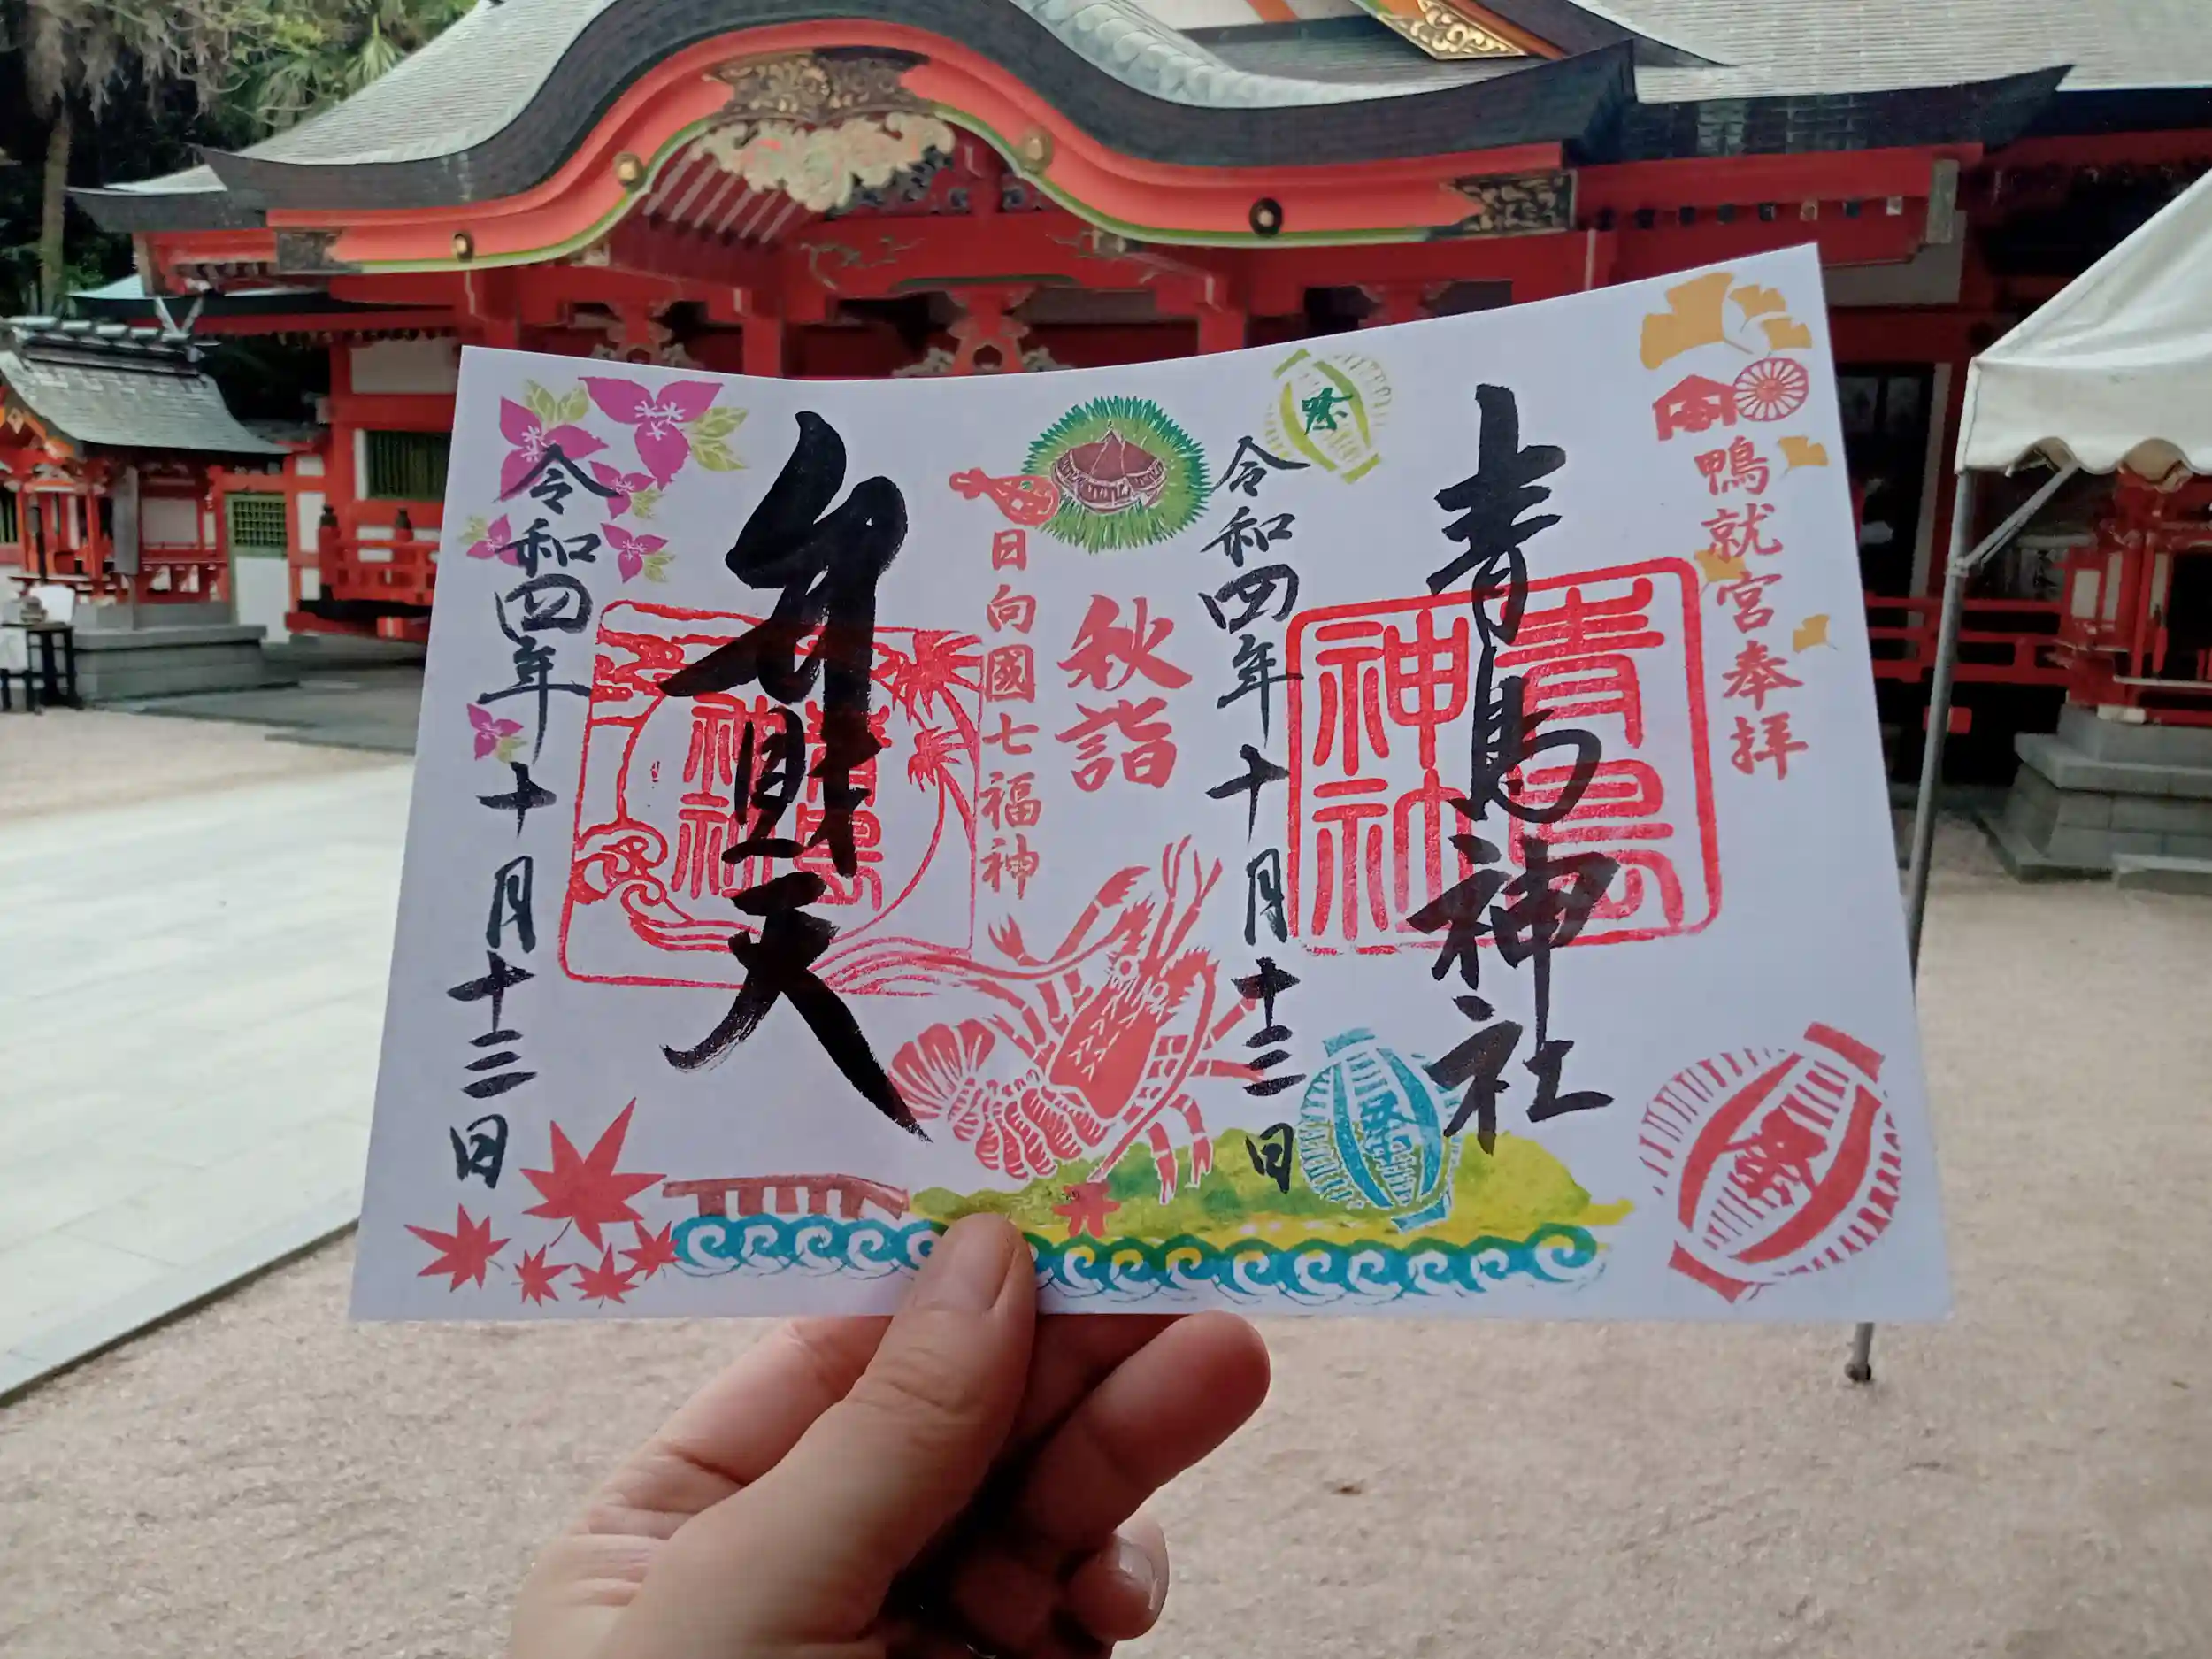 鴨就宮奉拝
青島神社
青島
神社
祭
祭
祭
令和四年十月十三日
秋詣
日向國七福神
弁財天
青島
神社
令和四年十月十三日